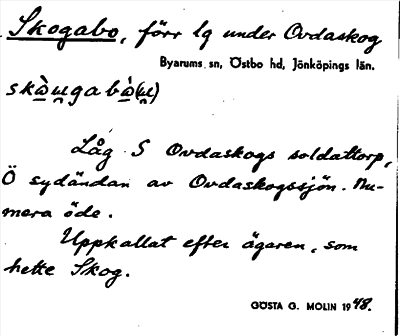 Skogabo, förr lg under Ovdaskog
Byarums sn, Östbo hd, Jönköpings län.
skɷ̀u̯gabɷ̀(u̯)
Låg S Ovdaskogs soldattorp,
Ö sydändan av Ovdaskogssjön. Nu-
mera öde.
Uppkallat efter ägaren, som
hette Skog.
GÖSTA G. MOLIN 1948.